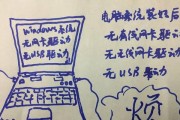 Windows系统
无网卡驱动
无USB驱动
电脑系统装好后
无有线网卡驱动
无无线网卡驱动
无USB驱动
烦